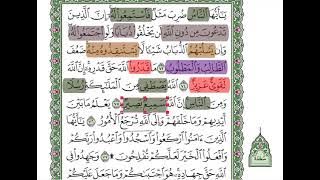 يَٰٓأَيُّهَا ٱلنَّاسُ ضُرِبَ مَثَلٌ فَٱسْتَمِعُوا۟ لَهُۥٓ ۚ إِنَّ ٱلَّذِينَ
تَدْعُونَ مِن دُونِ ٱللَّهِ لَن يَخْلُقُوا۟ ذُبَابًا وَلَوِ ٱجْتَمَعُوا۟ لَهُۥ ۖ
وَإِن يَسْلُبْهُمُ ٱلذُّبَابُ شَيْـًٔا لَّا يَسْتَنقِذُوهُ مِنْهُ ۚ ضَعُفَ
ٱلطَّالِبُ وَٱلْمَطْلُوبُ ٧٣ مَا قَدَرُوا۟ ٱللَّهَ حَقَّ قَدْرِهِۦٓ ۗ إِنَّ ٱللَّهَ
لَقَوِىٌّ عَزِيزٌ ٧٤ ٱللَّهُ يَصْطَفِى مِنَ ٱلْمَلَٰٓئِكَةِ رُسُلًا
وَمِنَ ٱلنَّاسِ ۚ إِنَّ ٱللَّهَ سَمِيعٌۢ بَصِيرٌ ٧٥ يَعْلَمُ مَا بَيْنَ
أَيْدِيهِمْ وَمَا خَلْفَهُمْ ۗ وَإِلَى ٱللَّهِ تُرْجَعُ ٱلْأُمُورُ ٧٦ يَٰٓأَيُّهَا
ٱلَّذِينَ ءَامَنُوا۟ ٱرْكَعُوا۟ وَٱسْجُدُوا۟ وَٱعْبُدُوا۟ رَبَّكُمْ
وَٱفْعَلُوا۟ ٱلْخَيْرَ لَعَلَّكُمْ تُفْلِحُونَ ۩ ٧٧ وَجَٰهِدُوا۟ فِى
ٱللَّهِ حَقَّ جِهَادِهِۦ ۚ هُوَ ٱجْتَبَىٰكُمْ وَمَا جَعَلَ عَلَيْكُمْ